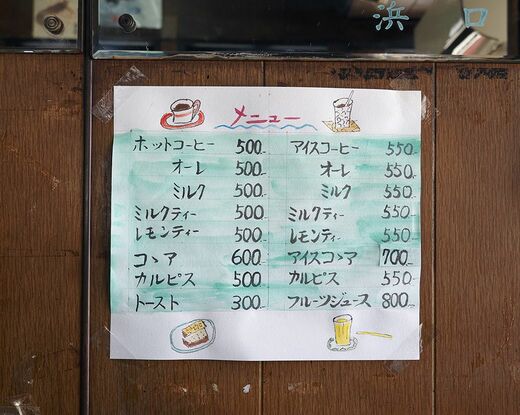 浜 口
メニュー
ホットコーヒー 500
オーレ 500
ミルク 500
ミルクティー 500
レモンティー 500
コヽア 600
カルピス 500
トースト 300
アイスコーヒー 550
オーレ 550
ミルク 550
ミルクティー 550
レモンティー 550
アイスコヽア 700
カルピス 550
フルーツジュース 800